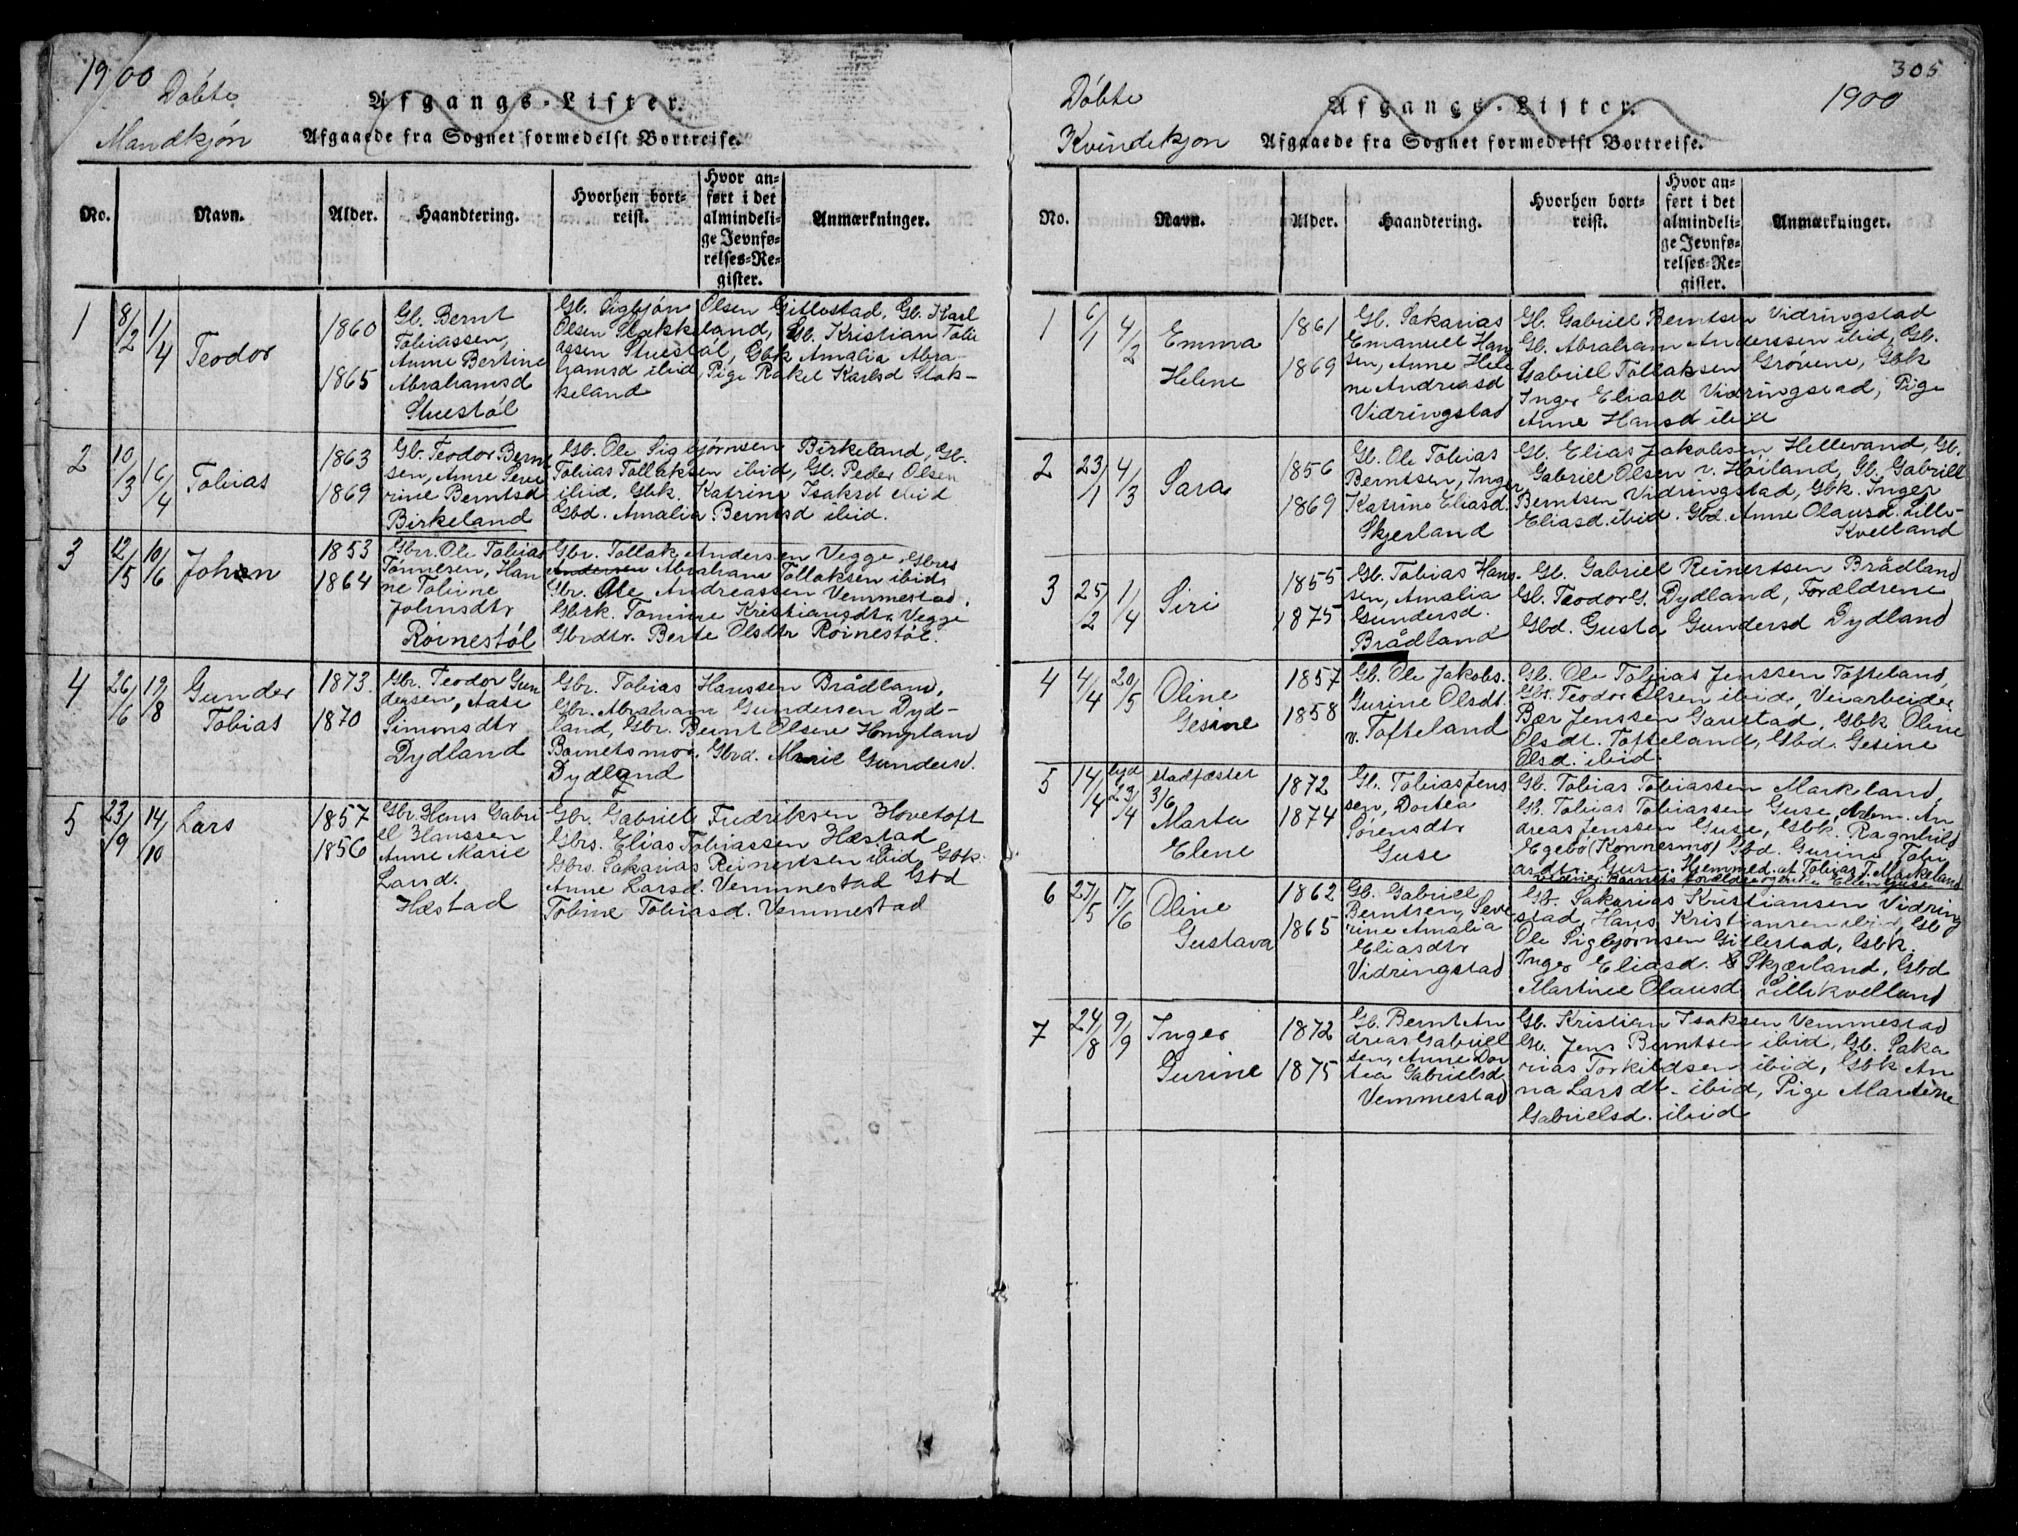 1900
Döbte
Mandkjön
Afgangs-Lister.
Afgaaede fra Sognet formedelst Bortreise.
No.
Navn.
Alder.
Haandtering.
Hvorhen bort=
reist.
Hvor an=
ført i det
almindeli=
ge Jevnfø=
relses=Re=
gister.
Anmærkninger.
1
8/2
1/4
Teodor
1860
1865
Gb. Bernt
Tobiassen,
Anne Bertine
Abrahamsd
Stuestöl
Gb. Sigbjön Olsen Gitlestad, Gb. Karl
Olsen Stakkeland, Gb. Kristian Tobi
assen Stuestöl, Gbk Amalia Abra-
hamsd ibid, Pige Rakel Karlsd Stak-
keland
2
10/3
16/4
Tobias
1863
1869
Gb. Teodor Bernt
sen, Anne Seve
rine Berntsd
Birkeland
Gb. Ole Sigbjörnsen Birkeland, Gb.
Tobias Tollaksen ibid, Gb. Peder Olsen
ibid, Gbk. Katrine Isaksd ibid
Gbd. Amalia Berntsd ibid.
3
12/5
10/6
Johan
1853
1864
Gbr. Ole Tobias
Tönnesen, Han
ne Tobine
Johnsdtr
Röinestöl
Gbr. Tollak Andersen Vegge, Gbrs
Andersen Abraham Tollaksen ibid,
Gbr. Ole Andreassen Vemmestad,
Gbrk. Tomine Kristiansdtr Vegge
Gbrdtr. Berte Olsdtr Röinestöl.
4
26/6
19/8
Gunder
Tobias
1873.
1870
Gbr. Teodor Gun
dersen, Aase
Simonsdtr
Dydland
Gbr. Tobias Hanssen Brådland,
Gbr. Abraham Gundersen Dyd-
land, Gbr. Bernt Olsen Hompland
Barnets mor, Gbrd. Marie Gundersd.
Dydland
5
23/9
14/10
Lars
1857
1856
Gbr. Hans Gabri
el Hanssen
Anne Marie
Larsd.
Hæstad
Gbr. Gabriel Fredriksen Hovetoft
Gbrs. Elias Tobiassen Hæstad
Gbrs. Sakarias Reinertsen ibid, Gbk.
Anne Larsd. Vemmestad Gbd
Tobine Tobiasd. Vemmestad
305
1900
Döbte
Kvindekjøn
Afgangs-Lister.
Afgaaede fra Sognet formedelst Bortreise.
No.
Navn.
Alder.
Haandtering.
Hvorhen bort=
reist.
Hvor an=
ført i det
almindeli=
ge Jevnfø=
relses=Re=
gister.
Anmærkninger.
1
6/1
4/2
Emma
Helene
1861
1869
Gb. Sakarias
Emanuel Han
sen, Anne Hele
ne Andreasd
Vidringstad
Gb. Gabriel Berntsen Vidringstad
Gb. Abraham Anderssen ibid, Gb.
Gabriel Tollaksen Grövene, Gbk
Inger Eliasd Vidringstad, Pige
Anne Hansd ibid
2
23/1
4/3
Sara
1856
1869
Gb. Ole Tobias
Berntsen, Inger
Katrine Eliasd.
Skjerland
Gb. Elias Jakobsen Hellevand, Gb.
Gabriel Olsen v. Höiland, Gb. Gabriel
Berntsen Vidringstad, Gbk. Inger
Eliasd. ibid. Gbd. Anne Olausd. Lille-
Kvelland
3
25/2
1/4
Siri
1855
1875
Gb. Tobias Hans-
sen, Amalia
Gundersd.
Brådland
Gb. Gabriel Reinertsen Brådland
Gb. Teodor G. Dydland, Forældrene
Gbd. Gusta Gundersd Dydland
4
4/4
20/5
Oline
Gesine
1857
1858
Gb. Ole Jakobs.
Gurine Olsdt.
v. Tofteland
Gb. Ole Tobias Jenssen Tofteland,
Gbr. Teodor Olsen ibid, Veiarbeider
Bær Jenssen Gaustad, Gbk Oline
Olsdt. Tofteland, Gbd. Gesine
Olsd. ibid.
5
14/4
23/4
stadfæstet
3/6
Marta
Elene
1872
1874
Gb. Tobias Jens
sen, Dortea
Sörensdtr
Guse
Gb. Tobias Tobiassen Markeland,
Gb. Tobias Tobiassen Guse, Arbm. An
dreas Jenssen Guse, Gbk. Ragnhild
Egebö (Konnesmo) Gbd. Gurine Tobi
asdt. Guse. Hjemmed. af Tobias T. Markeland
6
27/5
17/6
Oline
Gustava
1862
1865
Gb. Gabriel
Berntsen, Seve
rine Amalia
Eliasdtr
Vidringstad
Gb. Sakarias Kristiansen Vidring
stad, Hans Kristiansen ibid, Gb
Ole Sigbjörnsen Gitlestad, Gbk.
Inger Eliasd. Skjærland, Gbd
Martine Olausd. Lillekvelland
7
24/8
9/9
Inger
Gurine
1872
1875
Gb. Bernt An
dreas Gabriel
sen, Anne Dor
tea Gabrielsd
Vemmestad
Gb. Kristian Isaksen Vemmestad
Gb. Jens Berntsen ibid, Gb. Saka
rias Torkildsen ibid, Gbk An
na Larsdt. ibid, Pige Martine
Gabrielsd. ibid